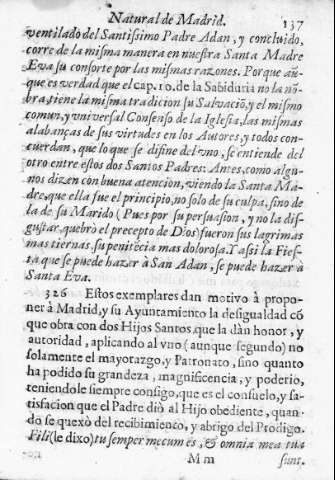 Natural de Madrid. 137
ventilado del Santissimo Padre Adan, y concluido,
corre de la misma manera en nuestra Santa Madre
Eva su consorte por las mismas razones. Porque aũ-
que es verdad que el cap. 10. de la Sabiduria no la nõ-
bra, tiene la misma tradicion su Salvaciõ, y el mismo
comun, y vniversal Consenso de la Iglesia, las mismas
alabanças de sus virtudes en los Autores, y todos con-
cuerdan, que lo que se difine del vno, se entiende del
otro entre estos dos Santos Padres: Antes, como algu-
nos dizen con buena atencion, viendo la Santa Ma-
dre, que ella fue el principio, no solo de su culpa, sino de
la de su Marido (Pues por su persuasion, y no la dis-
gustar, quebrò el precepto de Dios) fueron sus lagrimas
mas tiernas, su penitẽcia mas dolorosa. Y assi la Fies-
ta que se puede hazer à San Adan, se puede hazer à
Santa Eva.
326 Estos exemplares dan motivo à propo-
ner à Madrid, y su Ayuntamiento la desigualdad cõ
que obra con dos Hijos Santos, que la dàn honor, y
autoridad, aplicando al vno (aunque segundo) no
solamente el mayorazgo, y Patronato, sino quanto
ha podido su grandeza, magnificencia, y poderio,
teniendole siempre consigo, que es el consuelo, y sa-
tisfacion que el Padre diò al Hijo obediente, quan-
do se quexò del recibimiento, y abrigo del Prodigo.
Fili (le dixo) tu semper mecum es, & omnia mea tua
M m sunt.